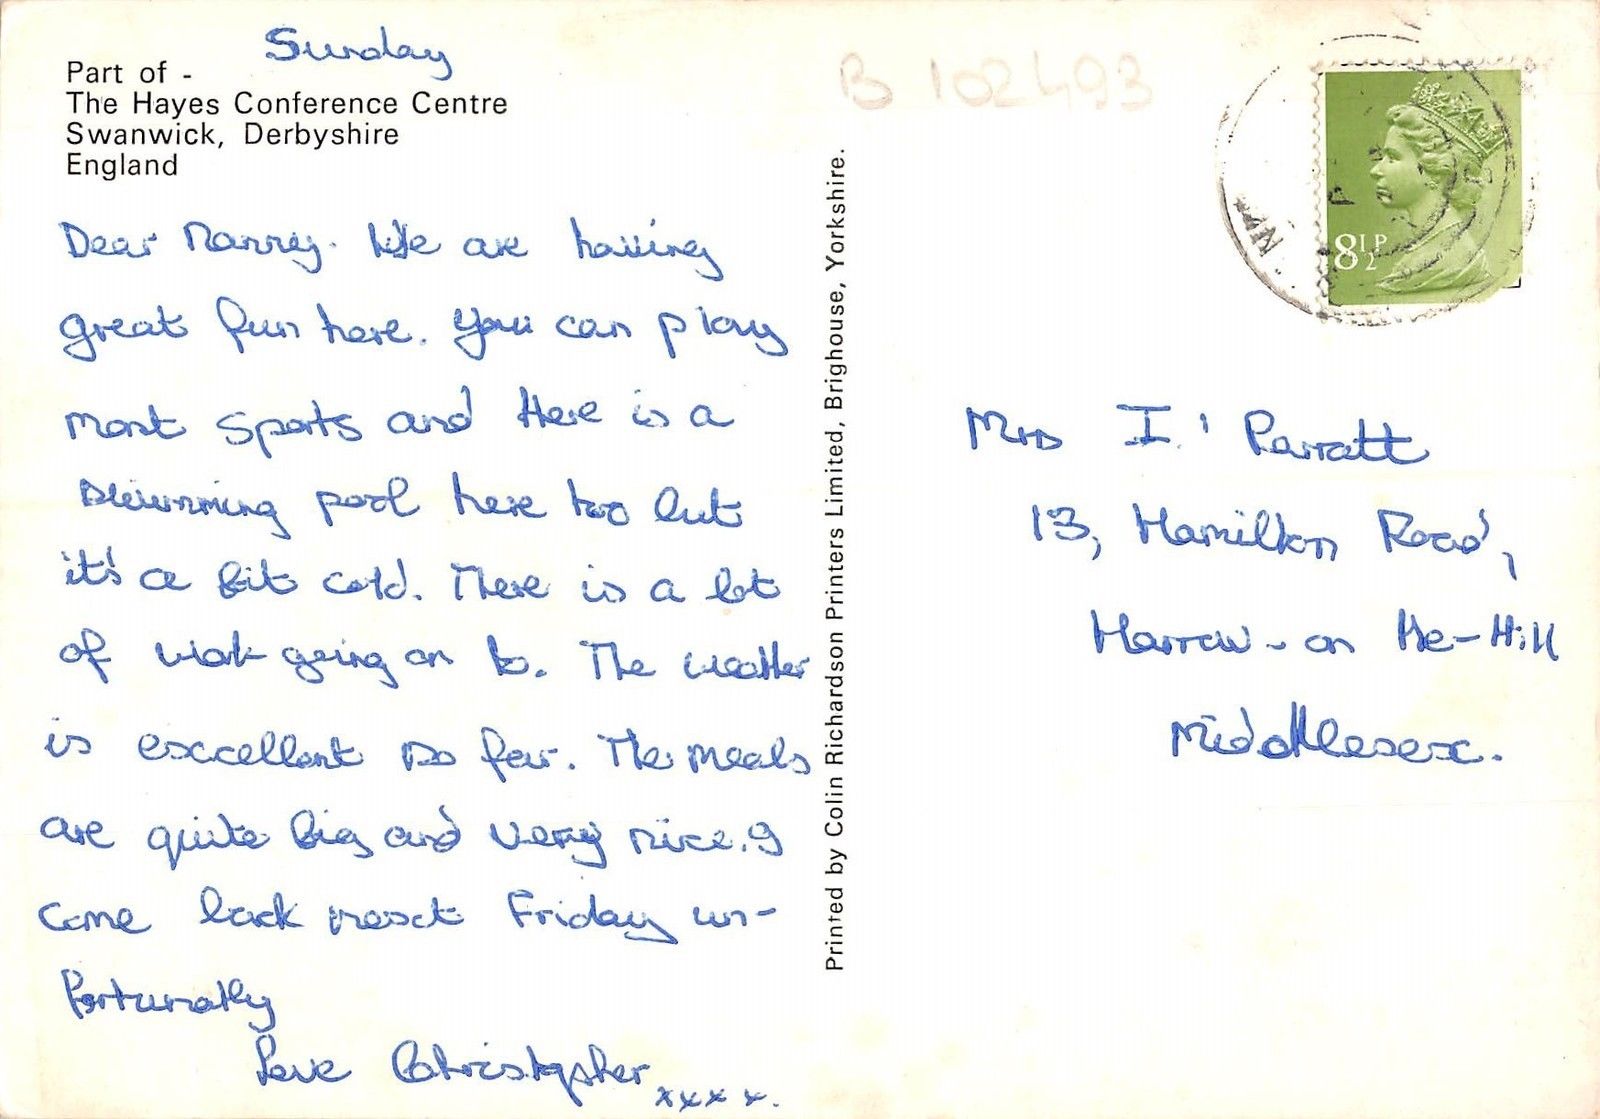 Sunday
Part of -
The Hayes Conference Centre
Swanwick, Derbyshire
England
Dear Nanny. We are having
great fun here. You can play
most sports and there is a
swimming pool here too but
it's a bit cold. There is a lot
of work going on to. The weather
is excellent so far. The meals
are quite big and very nice. I
come back next Friday un-
fortunatly
Love Christopher
xxxx.
Printed by Colin Richardson Printers Limited, Brighouse, Yorkshire.
B 102493
8½P
Mrs I. Parratt
13, Hamilton Road,
Harrow-on the-Hill
Middlesex.